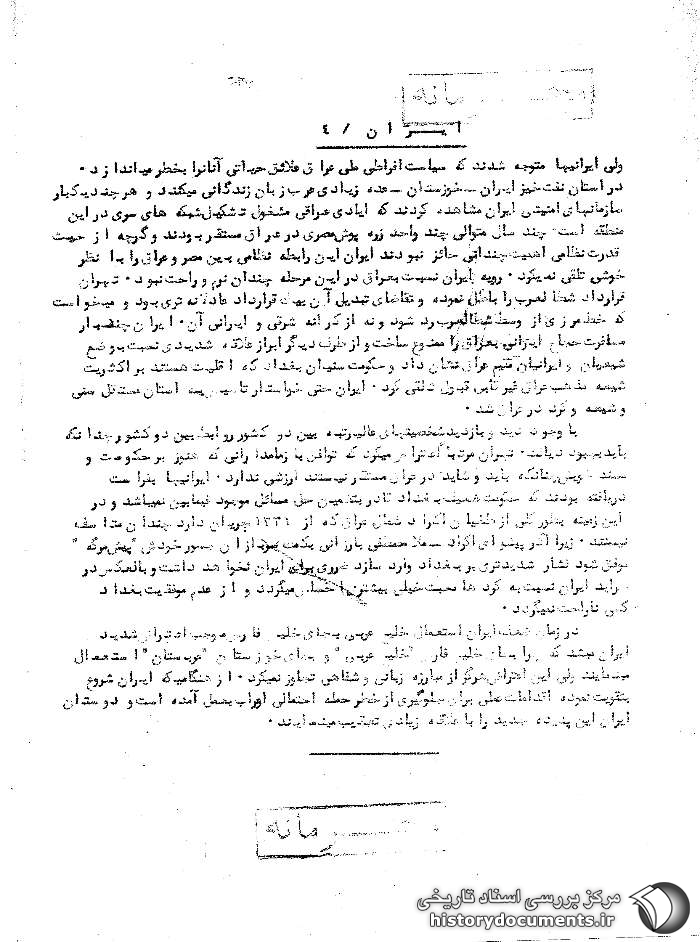 محرمانه
ایران / ٤
ولی ایرانیها متوجه شدند که سیاست افراطی ملی عراق علائق حیاتی آنانرا بخطر میاندازد ۰
در استان نفت خیز ایران – خوزستان – عده زیادی عرب زبان زندگانی میکنند و هر چند یکبار
سازمانهای امنیتی ایران مشاهده کردند که ایادی عراقی مشغول تشکیل شبکه های سری در این
منطقه است ۰ چند سال متوالی چند واحد زره پوش مصری در عراق مستقر بودند و گرچه از حیث
قدرت نظامی اهمیت چندانی حائز نبودند ایران این رابطه نظامی بین مصر و عراق را با نظر
خوشی تلقی نمیکرد ۰ رویه ایران نسبت بعراق در این مرحله چندان نرم و راحت نبود ۰ تهران
قرارداد شط العرب را باطل نموده و تقاضای تبدیل آن بیک قرارداد عادلانه تری بود و میخواست
که خط مرزی از وسط شط العرب رد شود و نه از کرانه شرقی و ایرانی آن ۰ ایران چند بار
مسافرت حجاج ایرانی بعراق را ممنوع ساخت و از طرف دیگر ابراز علاقه شدیدی نسبت بوضع
شیعیان و ایرانیان مقیم عراق نشان داد و حکومت سنیان بغداد که اقلیت هستند بر اکثریت
شیعه مذهب عراق غیر قابل قبول تلقی کرد ۰ ایران حتی خواستار تاسیس سه استان مستقل سنی
و شیعه و کرد در عراق شد ۰
با وجود دید و بازدید شخصیتهای عالیرتبه بین دو کشور روابط بین دو کشور چنانکه
باید بهبود نیافت ۰ تهران مرتبا اعتراض میکرد که توافق با زمامدارانی که هنوز بر حکومت و
مسند خویش چنانکه باید و شاید در عراق مستقر نیستند ارزشی ندارد ۰ ایرانیها بفراست
دریافته بودند که حکومت ضعیف بغداد قادر بتضمین حل مسائل موجود فیمابین نمیباشد و در
این زمینه بطور کلی از طغیان اکراد شمال عراق که از ۱۳۴۱ جریان دارد چندان متاسف
نیستند ۰ زیرا اگر پیشوای اکراد – ملا مصطفی بارزانی بکمک سربازان جسور خودش "پیش مرگه"
موفق شود فشار شدیدتری بر بغداد وارد سازد ضرری برای ایران نخواهد داشت و بالعکس در
ایران نسبت به کرد ها محبت خیلی بیشتری احساس میگردد و از عدم موفقیت بغداد
کسی ناراحت نمیگردد ۰
در زمان ضعف ایران استعمال خلیج عربی بجای خلیج فارس موجب اعتراض شدید
ایران میشد که چرا بجای خلیج فارس "خلیج عربی" و بجای خوزستان "عربستان" استعمال
مینمایند ولی این اعتراض هرگز از مبارزه زبانی و شفاهی تجاوز نمیکرد ۰ از هنگامیکه ایران شروع
بتقویت نموده اقدامات عملی برای جلوگیری از خطر حمله احتمالی اعراب بعمل آمده است و دوستان
ایران این پدیده جدید را با علاقه زیادی تعقیب مینمایند ۰
محرمانه
مرکز بررسی اسناد تاریخی
historydocuments.ir